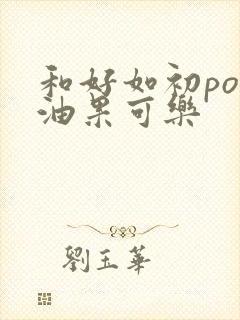 和好如初po
油果可樂
劉玉華